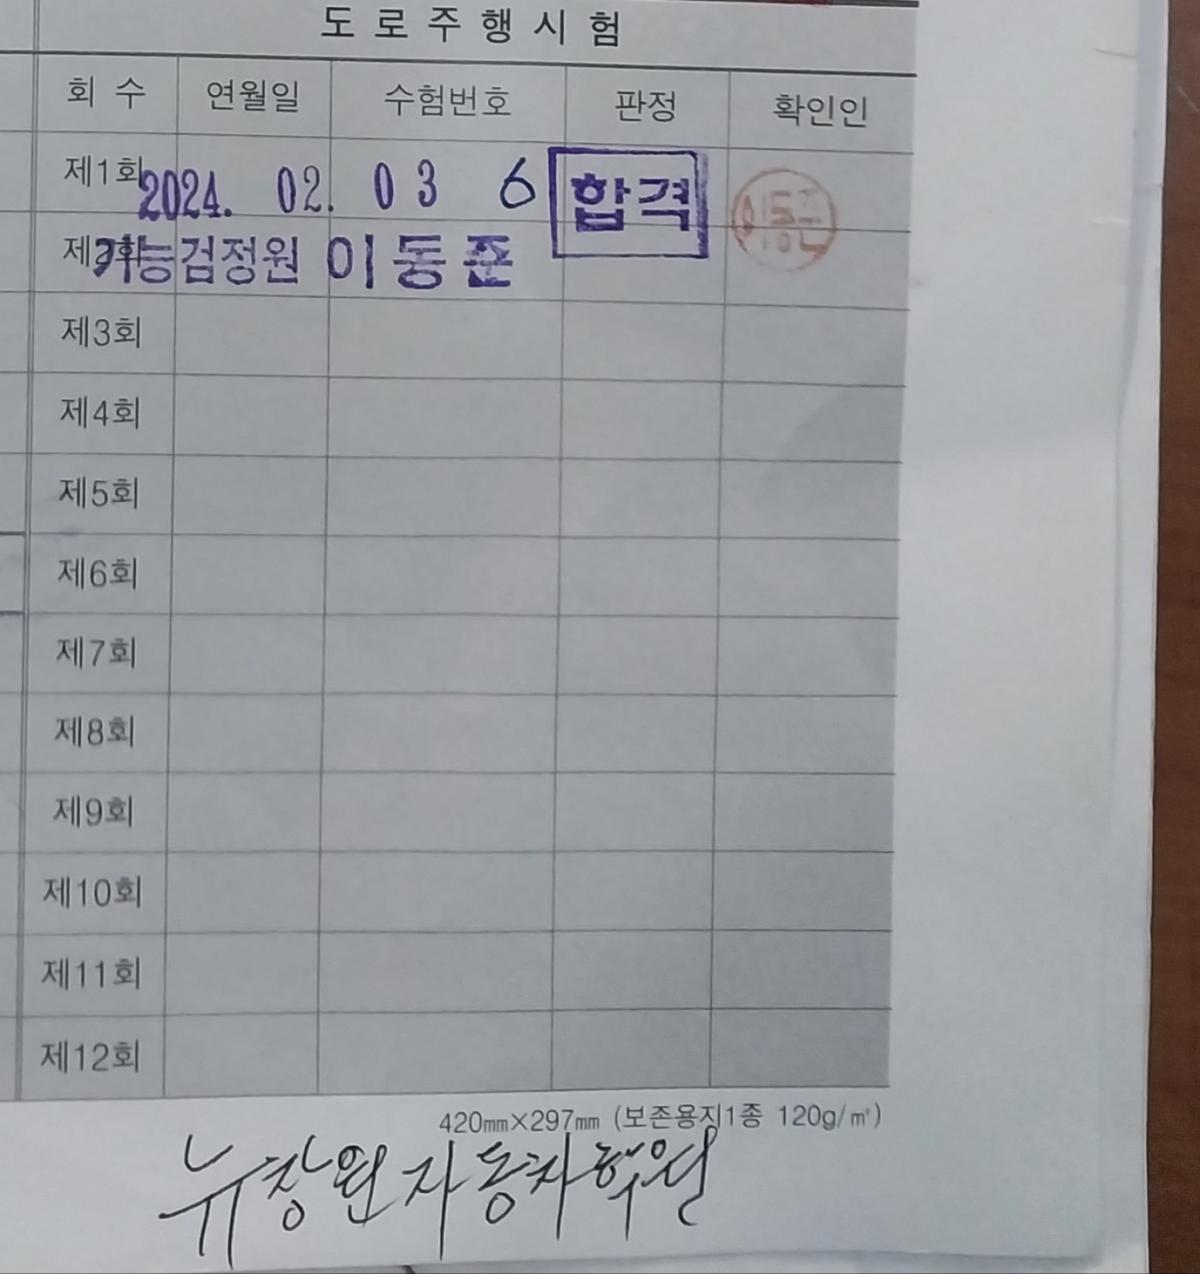 도로주행시험
회 수 연월일 수험번호 판정 확인인
제1회 2024. 02. 03 6 합격 이동준인
제2회 기능검정원 이동준
제3회
제4회
제5회
제6회
제7회
제8회
제9회
제10회
제11회
제12회
420㎜×297㎜ (보존용지1종 120g/㎡)
뉴창원자동차학원